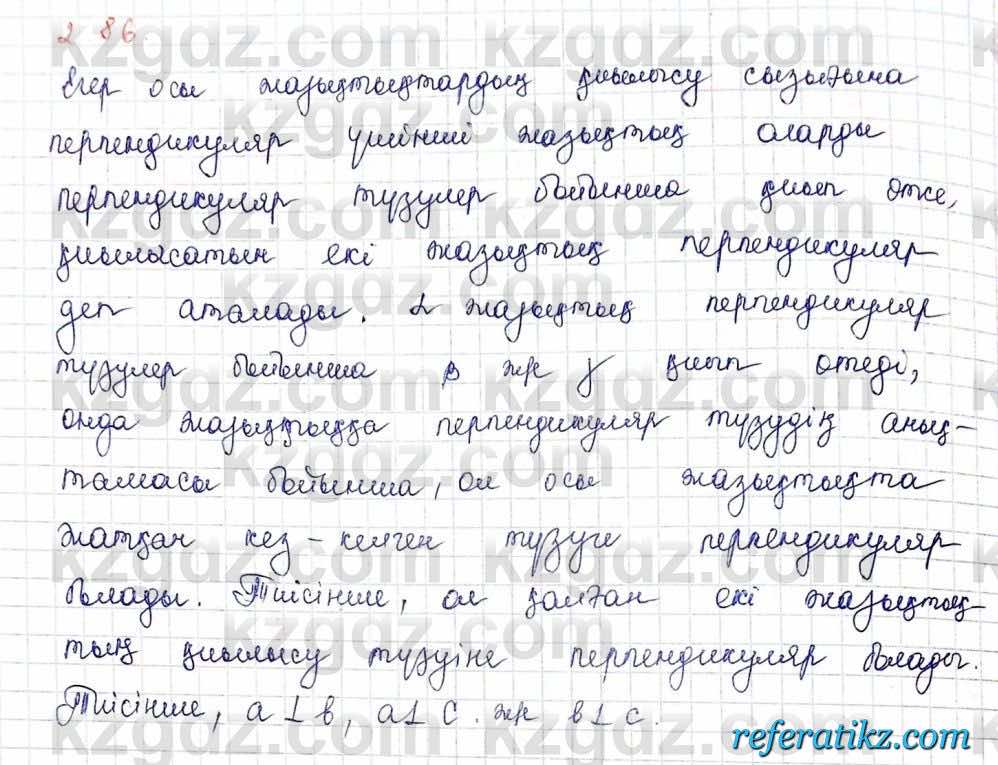 2 86.
Егер осы жазықтықтардың қиылысу сызығына
перпендикуляр үшінші жазықтық оларды
перпендикуляр түзулер бойынша қиып өтсе,
қиылысатын екі жазықтық перпендикуляр
деп аталады. α жазықтық перпендикуляр
түзулер бойынша β жж γ қиып өтеді,
онда жазықтыққа перпендикуляр түзудің анық-
тамасы бойынша, ол осы жазықтықта
жатқан кез-келген түзуге перпендикуляр
болады. Тиісінше, ол қалған екі жазықтық-
тың қиылысу түзуіне перпендикуляр болады.
Тиісінше, a⊥b, a⊥c. жж b⊥c.
referatikz.com
kzgdz.com